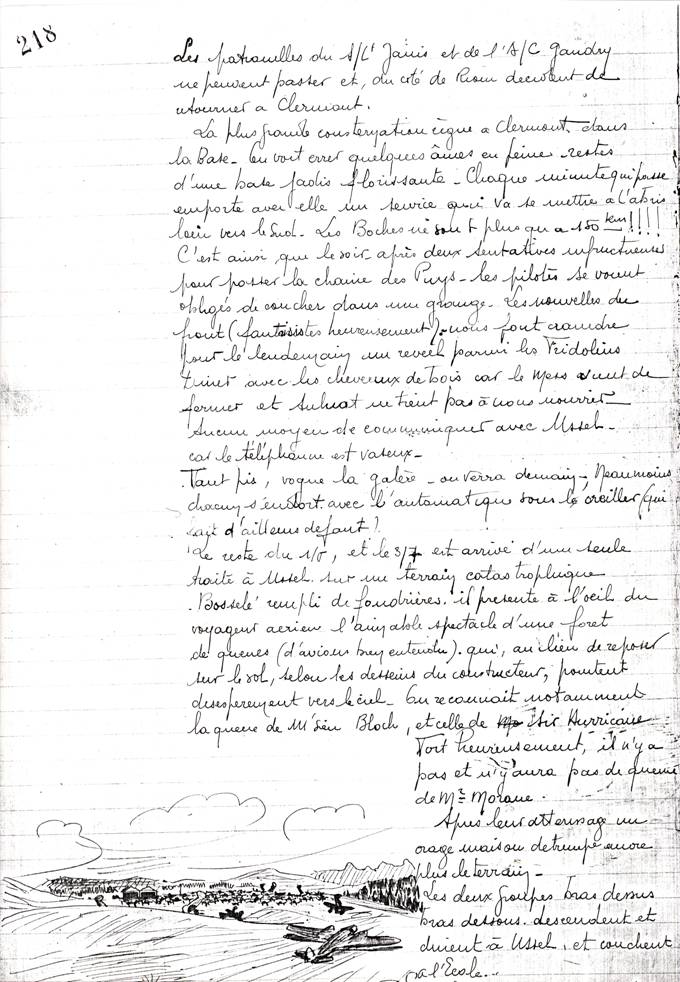 218
Les patrouilles du S/Lt Janis et de l'A/C Gaudry
ne peuvent passer et, du coté de Riom decident de
retourner a Clermont.
La plus grande consternation règne a Clermont dans
la Base - On voit errer quelques âmes en peine - restes
d'une base jadis florissante - Chaque minute qui passe
emporte avec elle un service qui va se mettre a l'abris
loin vers le Sud. Les Boches ne sont plus qu'a 150 km !!!!
C'est ainsi que le soir - après deux tentatives infructueuses
pour passer la chaine des Puys - les pilotes se voient
obligés de coucher dans une grange - Les nouvelles du
front (fantaisistes heureusement) - nous font craindre
pour le lendemain un reveil parmi les Fridolins
Diner avec les chevaux de bois car le Mess vient de
fermer et Aulnat ne tient pas à nous nourrir -
Aucun moyen de communiquer avec Ussel -
car le téléphone est vaseux -
Tant pis, vogue la galère - on verra demain - Neanmoins
chacun s'endort avec l'automatique sous le oreiller (qui
fait d'ailleurs defaut).
Le reste du 1/6, et le 3/7 est arrivé d'une seule
traite à Ussel. sur un terrain catastrophique
Bosselé rempli de fondrières. il presente à l'oeil du
voyageur aerien l'aimable spectacle d'une foret
de queues (d'avions bien entendu). qui, au lieu de reposer
sur le sol, selon les desseins du constructeur, pointent
desesperement vers le ciel - On reconnait notamment
la queue de M'sieu Bloch, et celle de Sir Hurricane
Fort heureusement, il n'y a
pas et n'y aura pas de queue
de Mr Morane.
Apres leur atterissage un
orage maison detrempe encore
plus le terrain -
Les deux groupes bras dessus
bras dessous. descendent et
dinent à Ussel, et couchent
a l'Ecole..